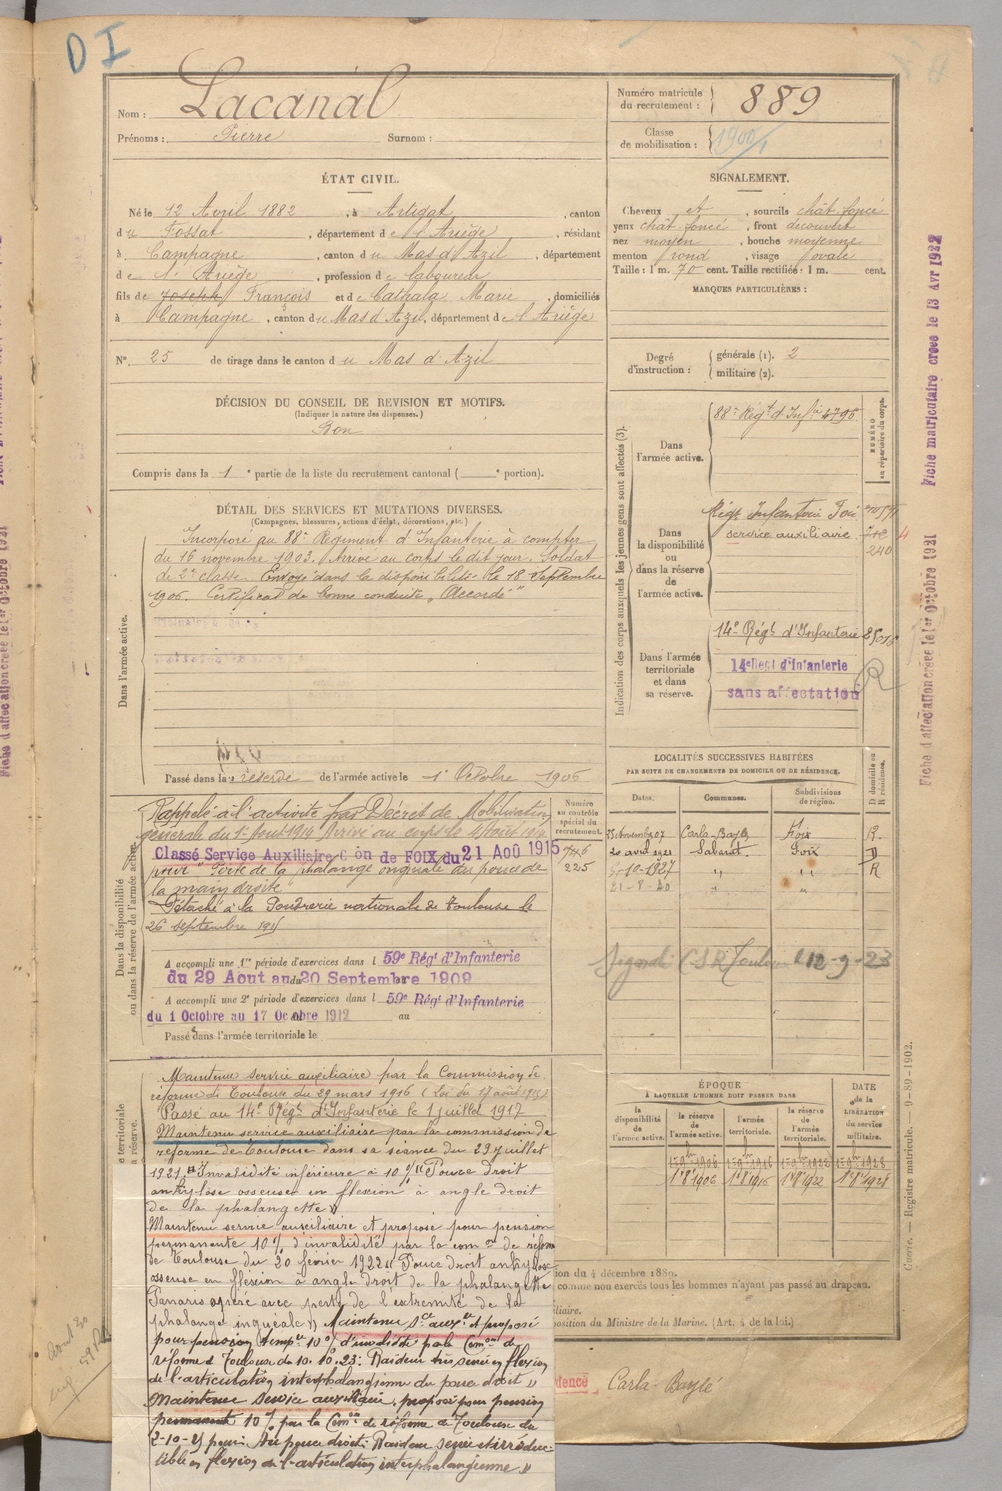 D I
Nom : Lacanal
Prénoms : Pierre Surnom :
Numéro matricule
du recrutement : 889
Classe
de mobilisation : 1900/1
ÉTAT CIVIL.
Né le 12 Avril 1882, à Artigat, canton
du Fossat, département de l'Ariège, résidant
à Campagne, canton du Mas d'Azil, département
de l'Ariège, profession de laboureur
fils de Joseph François et de Cathala Marie, domiciliés
à Campagne, canton du Mas d'Azil, département de l'Ariège
N° 25 de tirage dans le canton du Mas d'Azil
SIGNALEMENT.
Cheveux et, sourcils chât foncé
yeux chât foncé, front découvert
nez moyen, bouche moyenne
menton rond, visage ovale
Taille : 1 m. 70 cent. Taille rectifiée : 1 m. cent.
MARQUES PARTICULIÈRES :
Degré
d'instruction : générale (1). 2
militaire (2).
DÉCISION DU CONSEIL DE REVISION ET MOTIFS.
(Indiquer la nature des dispenses.)
Bon
Compris dans la 1e partie de la liste du recrutement cantonal ( e portion).
DÉTAIL DES SERVICES ET MUTATIONS DIVERSES.
(Campagnes, blessures, actions d'éclat, décorations, etc.)
Dans l'armée active.
Incorporé au 88e Régiment d'Infanterie à compter
du 16 novembre 1903. Arrivé au corps le dit jour. Soldat
de 2e classe. Envoyé dans la disponibilité le 18 Septembre
1906. Certificat de bonne conduite "Accordé"
Passé dans la réserve de l'armée active le 1 Octobre 1906
Indication des corps auxquels les jeunes gens sont affectés (3).
NUMÉRO
au répertoire du corps.
Dans
l'armée active.
88e Régt d'Infie 4795
Dans
la disponibilité
ou dans la
réserve de
l'armée active.
Régt Infanterie Foix
service auxiliaire
240
Dans l'armée
territoriale
et dans
sa réserve.
14e Régt d'Infanterie
14e Regt d'Infanterie
sans affectation
R
Dans la disponibilité
ou dans la réserve de l'armée active
Numéro
au contrôle
spécial du
recrutement.
225
Rappelé à l'activité par Décret de Mobilisation
générale du 1er Aout 1914 Arrivé au corps le 4 Août 1914
Classé Service Auxiliaire Con de FOIX du 21 Aoû 1915
pour "Perte de la phalange onguéale du pouce de
la main droite"
Détaché à la Poudrerie nationale de Toulouse le
26 septembre 1915
A accompli une 1re période d'exercices dans l 59e Régt d'Infanterie
du 29 Aout au 20 Septembre 1909
A accompli une 2e période d'exercices dans l 59e Régt d'Infanterie
du 1 Octobre au 17 Octobre 1912 au
Passé dans l'armée territoriale le
LOCALITÉS SUCCESSIVES HABITÉES
PAR SUITE DE CHANGEMENTS DE DOMICILE OU DE RÉSIDENCE.
Dates. Communes. Subdivisions
de région. D domicile ou
R résidence.
25 novembre 07 Carla-Bayle Foix R
20 avril 1921 Sabarat Foix D
5-10-1927 " " R
21-8-40 " "
12-9-23
ÉPOQUE
À LAQUELLE L'HOMME DOIT PASSER DANS
DATE
de la
LIBÉRATION
du service
militaire.
la
disponibilité
de
l'armée active.
la réserve
de
l'armée active.
l'armée
territoriale.
la réserve
de
l'armée
territoriale.
1er 8bre 1906 1er 8bre 1916 1er 8bre 1922 1er 8bre 1928
Maintenu service auxiliaire par la Commission de
réforme de Toulouse du 29 mars 1916 (loi du 17 août 1915)
Passé au 14e Régt d'Infanterie le 1 juillet 1917
Maintenu service auxiliaire par la commission de
réforme de Toulouse dans sa séance du 29 juillet
1921. "Invalidité inférieure à 10% "Pouce droit
ankylose osseuse en flexion à angle droit
de la phalangette"
Maintenu service auxiliaire et proposé pour pension
permanente 10% d'invalidité par la comon de réforme
de Toulouse du 20 février 1922 "Pouce droit ankylose
osseuse en flexion à angle droit de la phalangette
Panaris opéré avec perte de l'extrémité de la
phalange inguéale" Maintenu sce auxre et proposé
pour pension tempre 10% d'invalidité par la Comon de
réforme de Toulouse du 10.10.23. Raideur très serrée en flexion
de l'articulation interphalangienne du pouce droit"
Maintenu service auxiliaire, proposé pour pension
permanente 10% par la Comon de réforme de Toulouse du
2-10-25 pour: du pouce droit: Raideur serrée et irréduc-
tible en flexion de l'articulation interphalangienne"
e territoriale
a réserve.
ion du 4 décembre 1889.
comme non exercés tous les hommes n'ayant pas passé au drapeau.
iliaire.
position du Ministre de la Marine. (Art. 4 de la loi.)
dence Carla-Baylé
Fiche d'affectation créée le 1er Octobre 1921 Fiche matriculaire créée le 13 Avr 1922
— Registre matricule. — 9-89-1902.